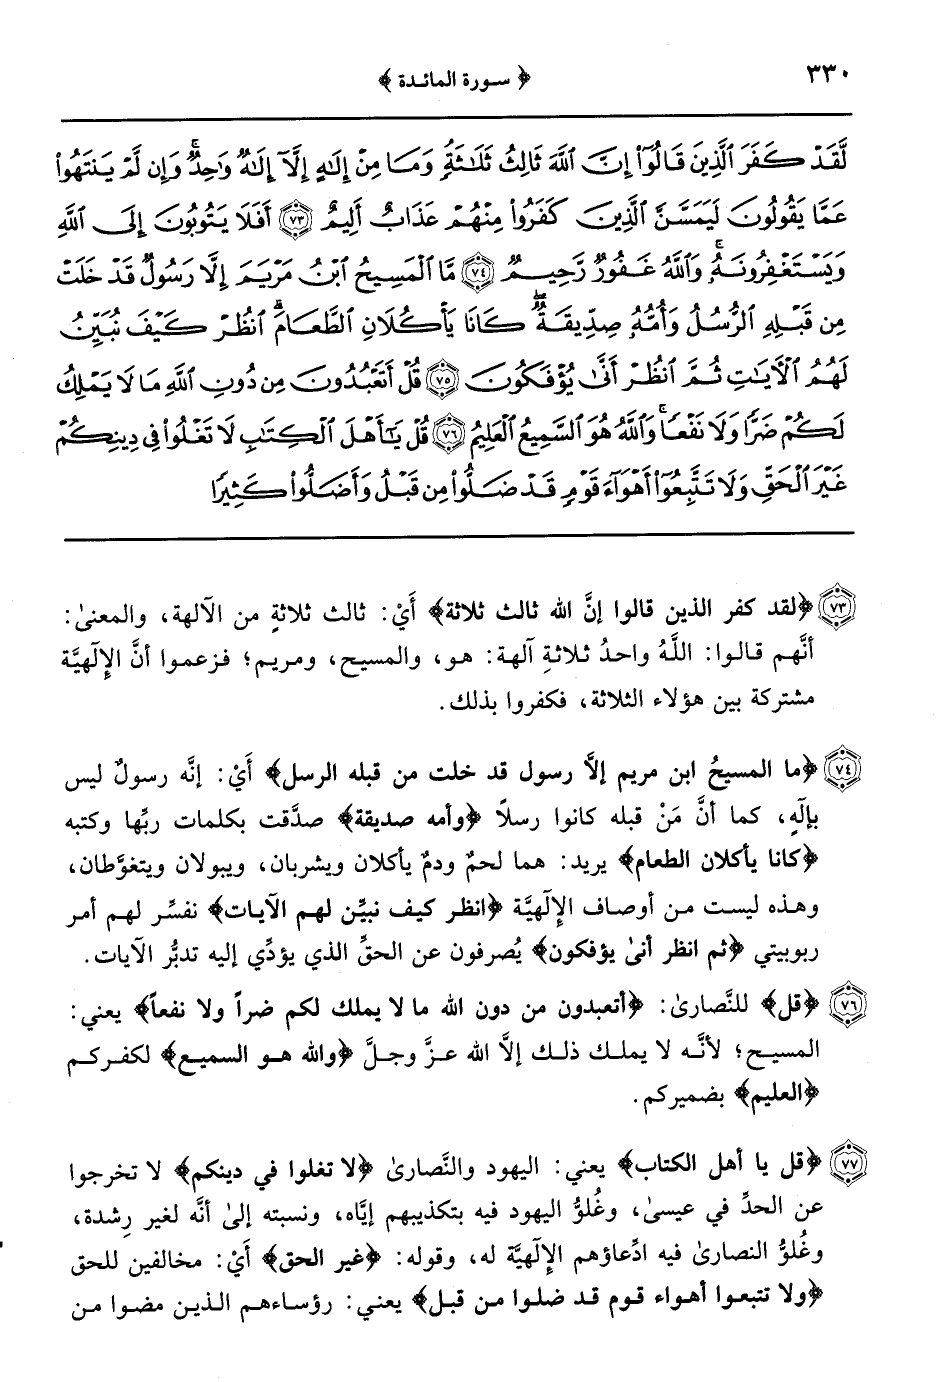 ٣٣٠
﴿ سورة المائدة ﴾
لَّقَدْ كَفَرَ الَّذِينَ قَالُوٓا۟ إِنَّ اللَّهَ ثَالِثُ ثَلَٰثَةٍ وَمَا مِنْ إِلَٰهٍ إِلَّآ إِلَٰهٌ وَٰحِدٌ وَإِن لَّمْ يَنتَهُوا۟
عَمَّا يَقُولُونَ لَيَمَسَّنَّ الَّذِينَ كَفَرُوا۟ مِنْهُمْ عَذَابٌ أَلِيمٌ ٧٣ أَفَلَا يَتُوبُونَ إِلَى اللَّهِ
وَيَسْتَغْفِرُونَهُۥ وَاللَّهُ غَفُورٌ رَّحِيمٌ ٧٤ مَّا الْمَسِيحُ ابْنُ مَرْيَمَ إِلَّا رَسُولٌ قَدْ خَلَتْ
مِن قَبْلِهِ الرُّسُلُ وَأُمُّهُۥ صِدِّيقَةٌ كَانَا يَأْكُلَانِ الطَّعَامَ انظُرْ كَيْفَ نُبَيِّنُ
لَهُمُ الْءَايَٰتِ ثُمَّ انظُرْ أَنَّىٰ يُؤْفَكُونَ ٧٥ قُلْ أَتَعْبُدُونَ مِن دُونِ اللَّهِ مَا لَا يَمْلِكُ
لَكُمْ ضَرًّا وَلَا نَفْعًا وَاللَّهُ هُوَ السَّمِيعُ الْعَلِيمُ ٧٦ قُلْ يَٰٓأَهْلَ الْكِتَٰبِ لَا تَغْلُوا۟ فِى دِينِكُمْ
غَيْرَ الْحَقِّ وَلَا تَتَّبِعُوٓا۟ أَهْوَآءَ قَوْمٍ قَدْ ضَلُّوا۟ مِن قَبْلُ وَأَضَلُّوا۟ كَثِيرًا
٧٣ ﴿لقد كفر الذين قالوا إنَّ الله ثالث ثلاثة﴾ أَيْ: ثالث ثلاثةٍ من الآلهة، والمعنىٰ:
أنَّهم قالوا: اللَّهُ واحدُ ثلاثةِ آلهة: هو، والمسيح، ومريم؛ فزعموا أنَّ الإِلٰهيَّة
مشتركة بين هؤلاء الثلاثة، فكفروا بذلك.
٧٤ ﴿ما المسيحُ ابن مريم إلاَّ رسول قد خلت من قبله الرسل﴾ أَيْ: إنَّه رسولٌ ليس
بإلٰهٍ، كما أنَّ مَنْ قبله كانوا رسلاً ﴿وأمه صديقة﴾ صدَّقت بكلمات ربِّها وكتبه
﴿كانا يأكلان الطعام﴾ يريد: هما لحمٌ ودمٌ يأكلان ويشربان، ويبولان ويتغوَّطان،
وهذه ليست من أوصاف الإِلٰهيَّة ﴿انظر كيف نبيِّن لهم الآيات﴾ نفسِّر لهم أمر
ربوبيتي ﴿ثم انظر أنىٰ يؤفكون﴾ يُصرفون عن الحقِّ الذي يؤدِّي إليه تدبُّر الآيات.
٧٦ ﴿قل﴾ للنَّصارىٰ: ﴿أتعبدون من دون الله ما لا يملك لكم ضراً ولا نفعاً﴾ يعني:
المسيح؛ لأنَّه لا يملك ذلك إلاَّ الله عزَّ وجلَّ ﴿والله هو السميع﴾ لكفركم
﴿العليم﴾ بضميركم.
٧٧ ﴿قل يا أهل الكتاب﴾ يعني: اليهود والنَّصارىٰ ﴿لا تغلوا في دينكم﴾ لا تخرجوا
عن الحدِّ في عيسىٰ، وغُلوُّ اليهود فيه بتكذيبهم إيَّاه، ونسبته إلىٰ أنَّه لغير رِشدة،
وغُلوُّ النصارىٰ فيه ادِّعاؤهم الإِلٰهيَّة له، وقوله: ﴿غير الحق﴾ أَيْ: مخالفين للحق
﴿ولا تتبعوا أهواء قوم قد ضلوا من قبل﴾ يعني: رؤساءهم الذين مضوا من